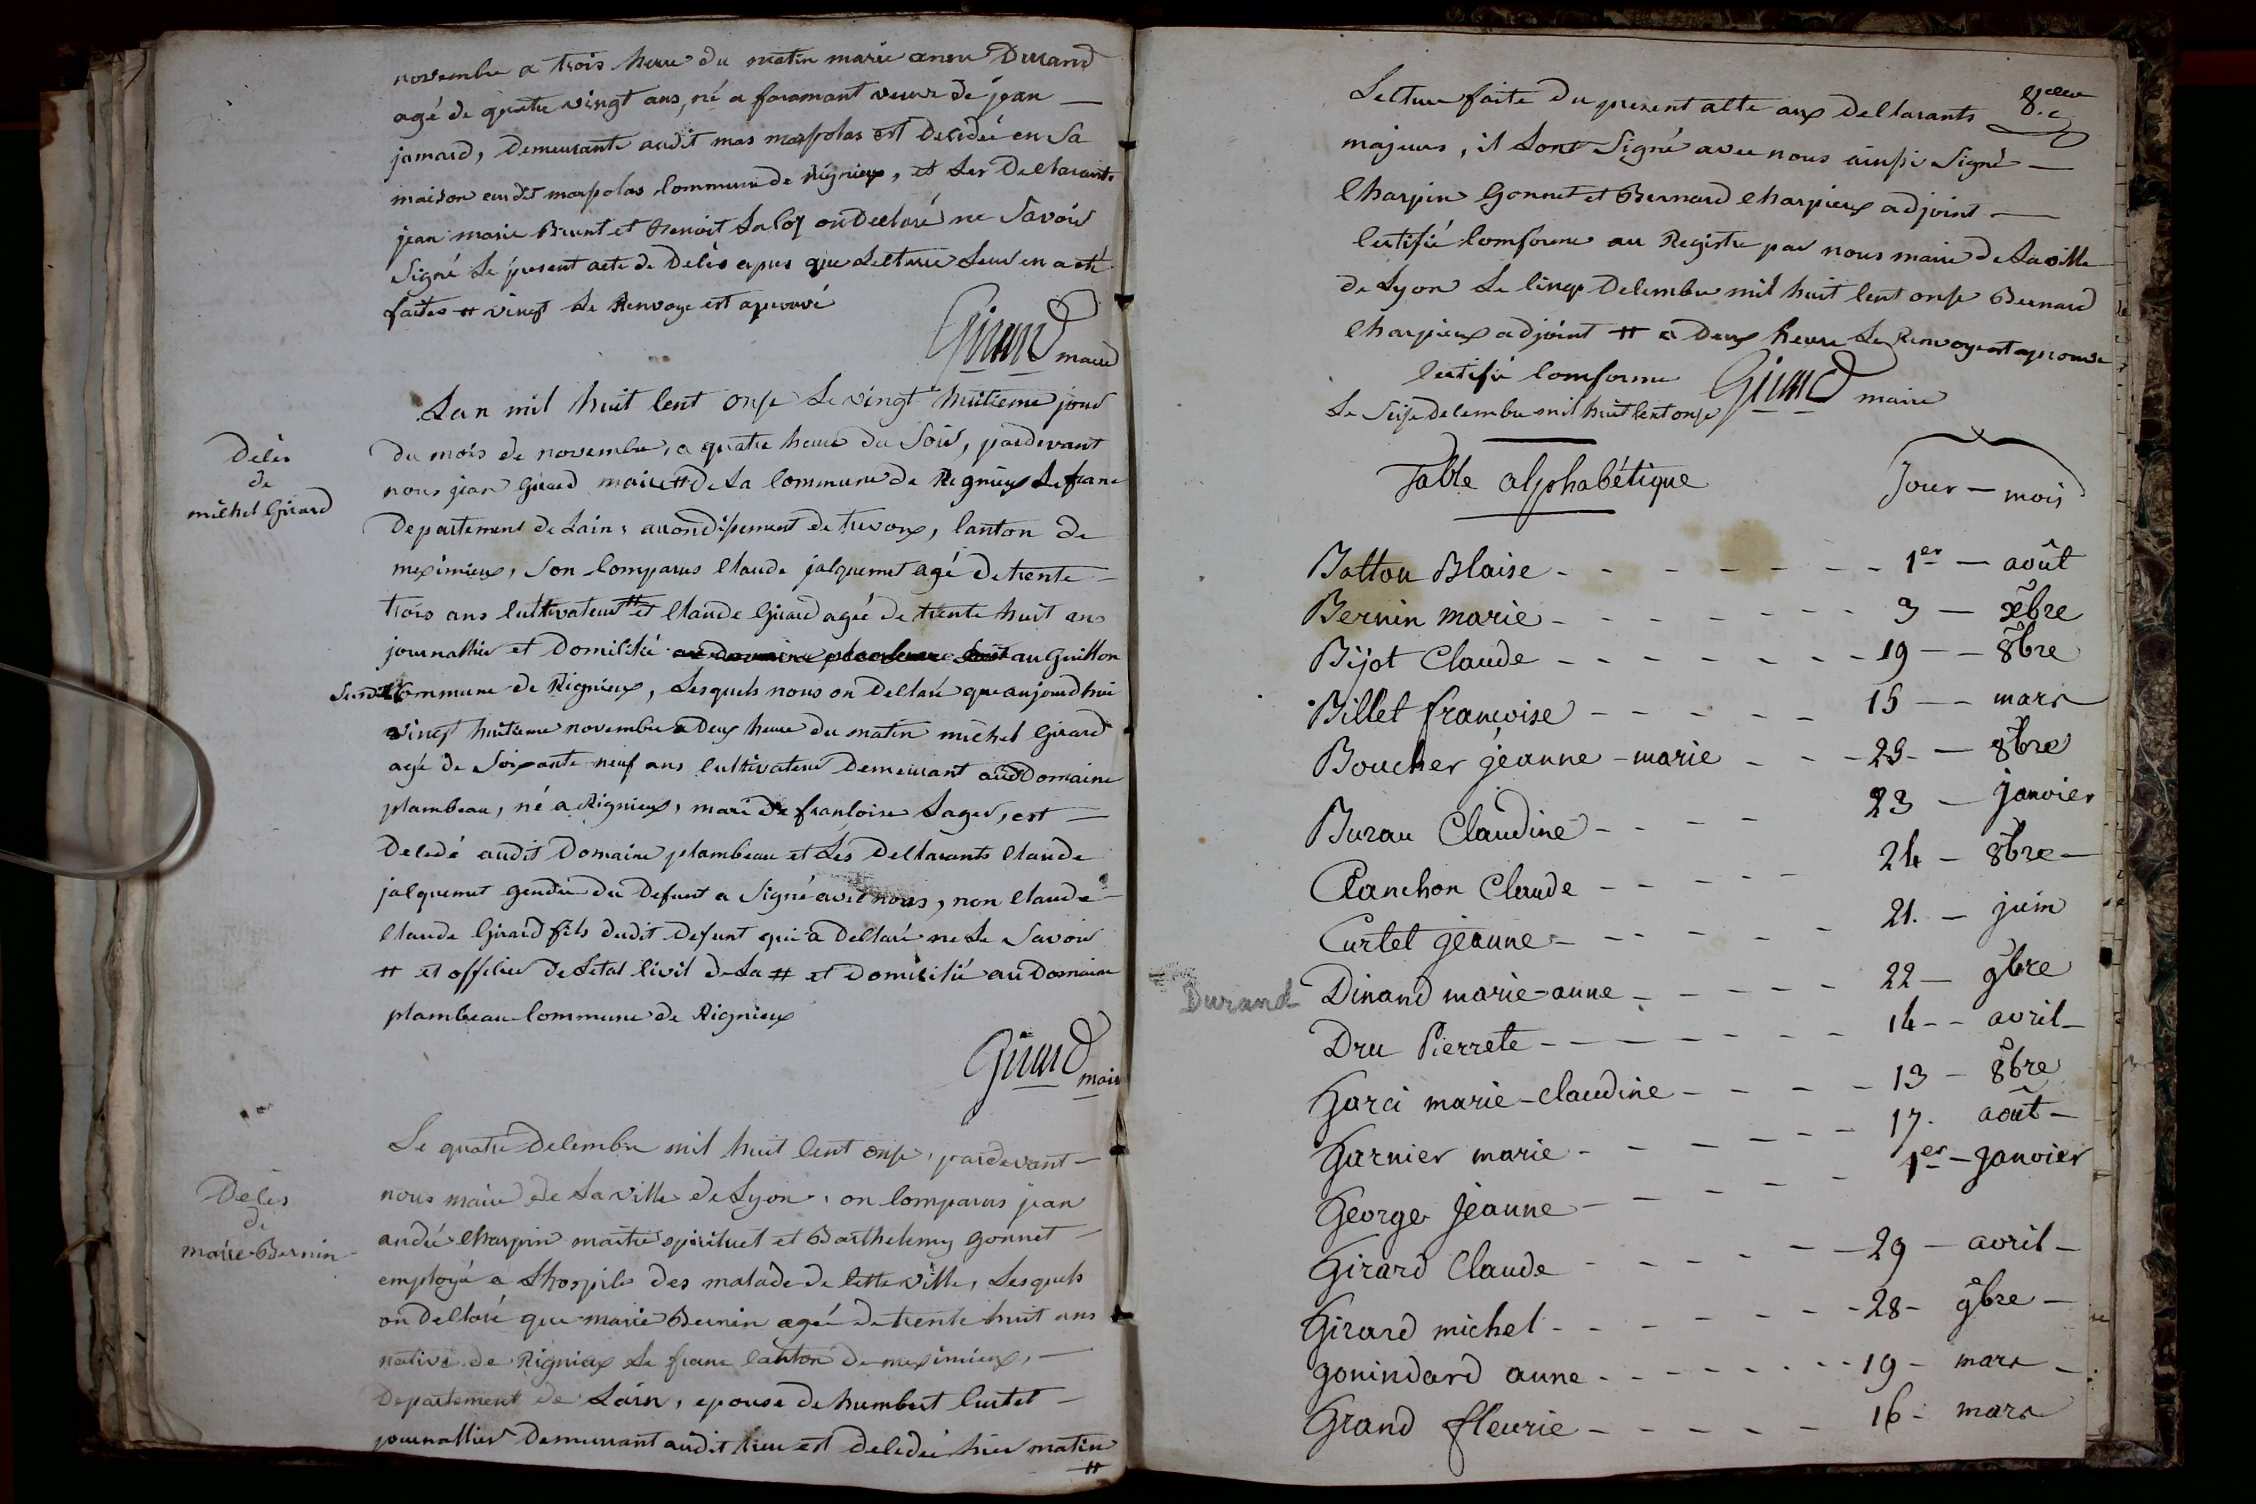 novembre a trois heure du matin marie anne Durand
agé de quatre vingt ans, né a faramant veuve de jean —
jamard, demeurante audit mas maspolas est Decedée en Sa
maison audit maspolas Commune de Rignieux, et Les Declarants
jean marie Brunt et Benoit on Declaré ne Savoir
Signé Le présent acte de Délès apres que Lecture Leur en a été
faites # vingt Le Renvoye est aprouvé
Girard maire
Lan mil huit Cent onse Le vingt huitieme jour
Délès
de
michel Girard
du mois de novembre, a quatre heure du Soir, pardevant
nous jean Girard maire # de La Commune de Rignieux Le franc
Departement de Lain, arrondissement de trevoux, Canton de
meximieux, Son Comparus Claude jacquemet agé de trente —
trois ans Cultivateur # et Claude Girard agée de trente huit ans
journallier et Domicilié au Guillon
Susdit Commune de Rignieux, Lesquels nous on Declaré que aujourdhui
vingt huitieme novembre a Deux heure du matin michel Girard
agé de Soixante neuf ans Cultivateur Demeurant audt Domaine
plambeau, né a Rignieux, mari de francloise Sager, est —
Decedé audit Domaine plambeau et Les Declarants Claude
jacquemet gendre du Defunt a Signé avec nous, non Claude —
Claude Girard fils dudit Defunt qui a Declaré ne Le Savoir
# et officier de Létat Civil de La # et Domicilié au Domaine
plambeau Commune de Rignieux
Girard maire
Le quatre Decembre mil huit Cent onse, pardevant —
Délès
de
marie Bernin
nous maire de La ville de Lyon, on Comparus jean
andré Charpin maitre spirituel et Barthelemy gonnet —
employé a Lhospile des malade de Cette ville, Lesquels
on Declaré que marie Bernin agée de trente huit ans
native de Rignieux Le franc Canton de meximieux, —
Departement de Lain, epouse de humbert Curtet —
journallier Demeurant audit Lieu est Decedée hier matin
#
Lecture faite du present acte aux Declarants
majeurs, il Sont Signé avec nous ainssi Signé —
Charpin Gonnet et Bernard Charpieux adjoint —
Certifié Comforme au Registre par nous maire de La ville
de Lyon Le Cinq Decembre mil huit Cent onse Bernard
Charpieux adjoint # a Deux heure Le Renvoye est aprouvé
Certifié Comforme Girard maire
Le Seise Decembre mil huit Cent onse
Table alphabétique Jour — mois
Battou Blaise - - - - - - - 1er — août
Bernin marie - - - - - - - 3 — xbre
Bijot Claude - - - - - - - 19 — 8bre
Billet françoise - - - - - 15 — mars
Boucher jeanne-marie - - - 23 — 8bre
Burau Claudine - - - - 23 — janvier
Clanchon Claude - - - - - 24 — 8bre —
Curtet jeanne - - - - - - 21. — juin
Durand Dinand marie-anne - - - - - 22 — 9bre
Dru Pierrete - - - - - - - 14 - - avril —
Garci marie-claudine - - - - 13 — 8bre
Garnier marie - - - - - - 17. août —
George Jeanne - - - - - - 1er — janvier
Girard Claude - - - - - - 29 — avril —
Girard michel - - - - - - - 28 - 9bre —
gonindard anne - - - - - - 19 - mars —
Grand fleurie - - - - - 16 - mars